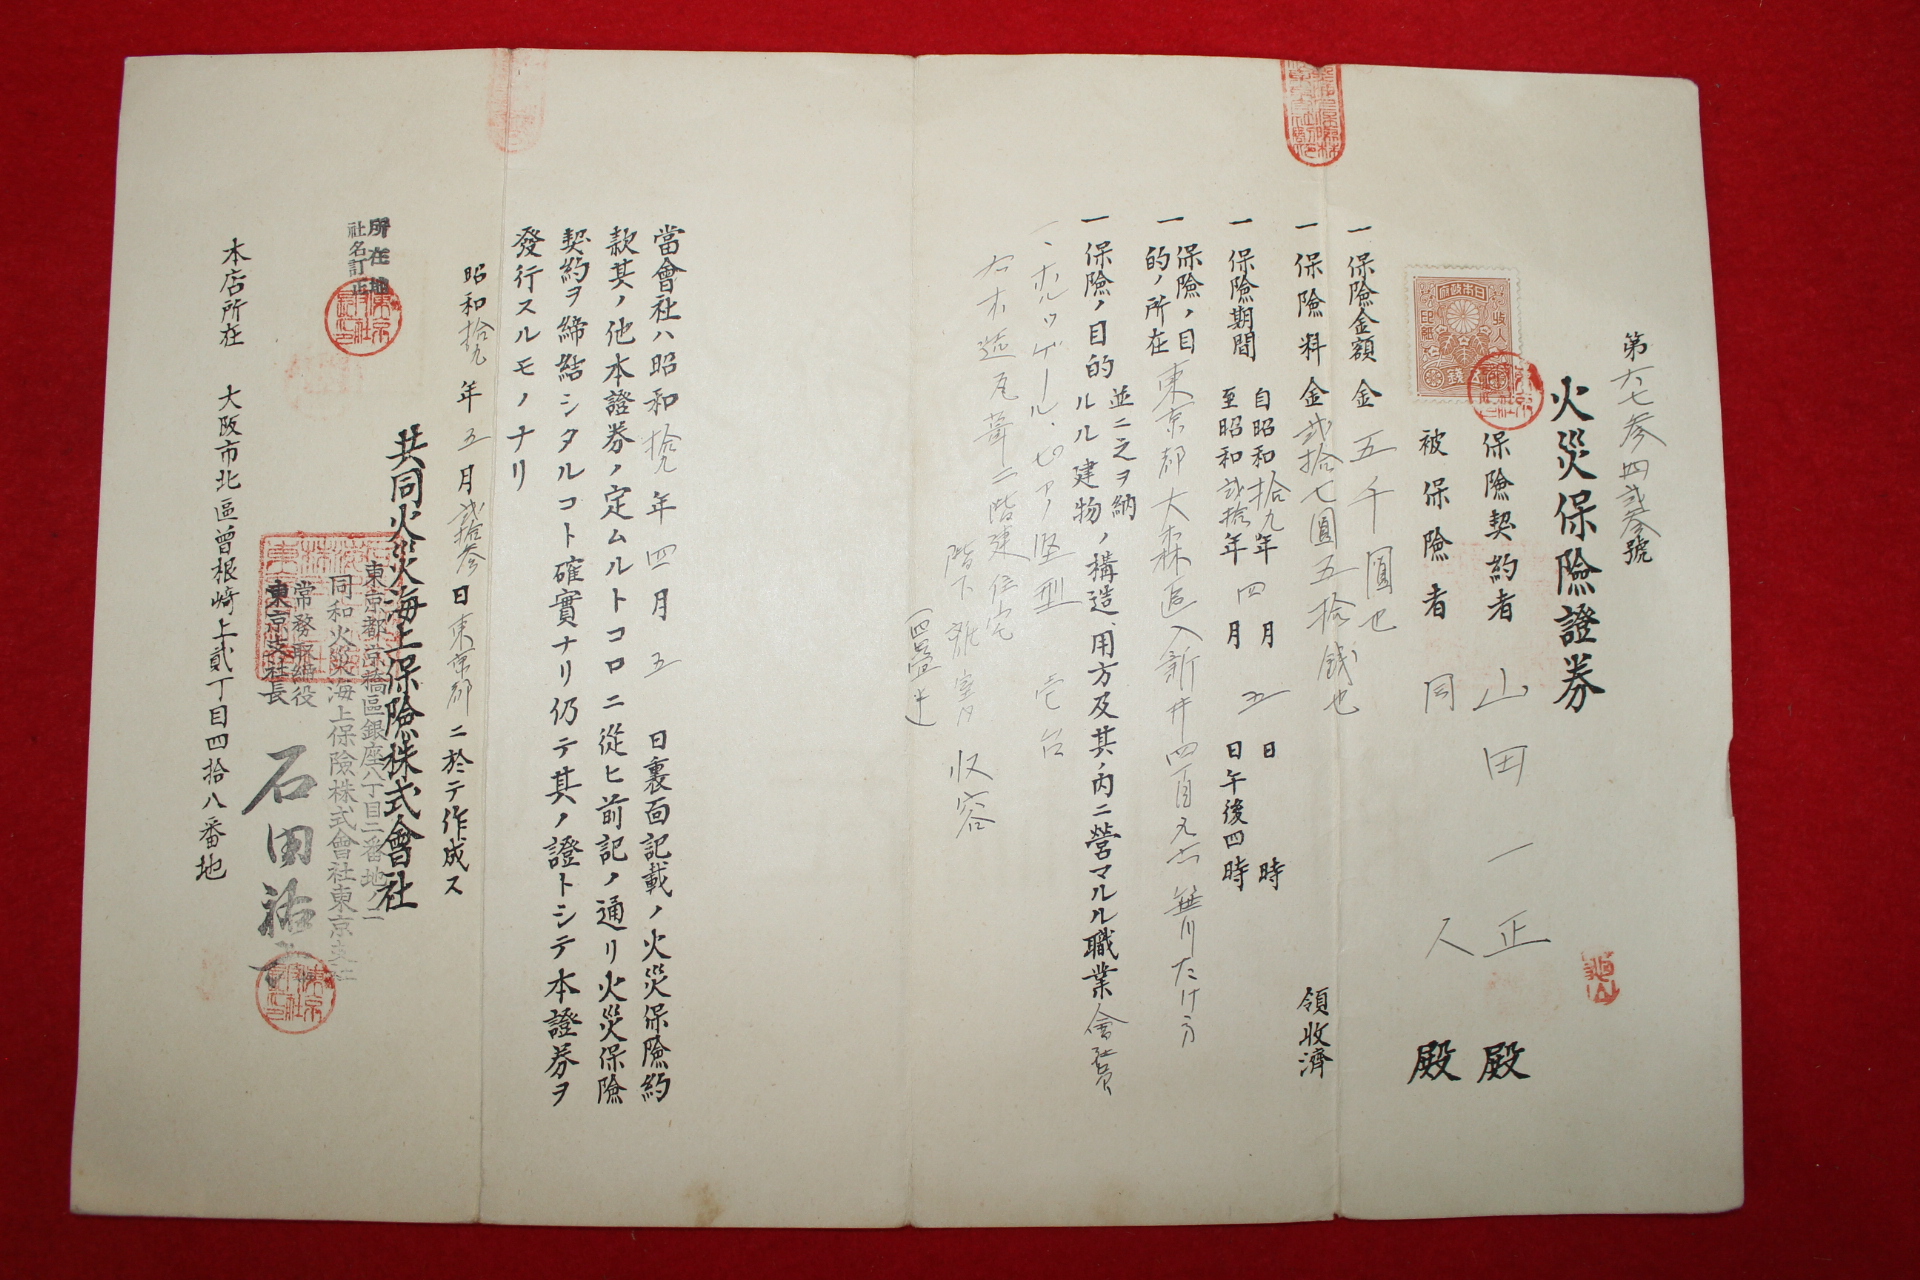 第六七参四貳参號
火災保險證券
日本政府
収入印紙
五錢
保險契約者 山田一正 殿
被保險者 同人 殿
一 保險金額 金 五千圓也
一 保險料 金 貳拾七圓五拾錢也 領收濟
一 保險期間 自昭和拾九年四月五日 時
至昭和貳拾年 月 日午後四時
一 保險ノ目的ノ所在 東京都大森區入新井四ノ 無川たけ方
一 保險ノ目的 並ニ之ヲ納ルル建物ノ構造、用方及其ノ内ニ營マルル職業 會社員
一、ホルツゲール、 堅型 壱台
右木造瓦葺二階建住宅
階下 室内 収容
(四疊半)
當會社ハ昭和拾九年四月五日裏面記載ノ火災保險約
款其ノ他本證券ノ定ムルトコロニ從ヒ前記ノ通リ火災保險
契約ヲ締結シタルコト確實ナリ仍テ其ノ證トシテ本證券ヲ
發行スルモノナリ
昭和拾九年五月貳拾参日東京都ニ於テ作成ス
共同火災海上保險株式會社
東京都京橋區銀座八丁目二番地ノ二
同和火災海上保險株式會社東京支社
常務取締役
東京支社長 石田祐
所在地
社名訂正
本店所在 大阪市北區曾根崎上貳丁目四拾八番地